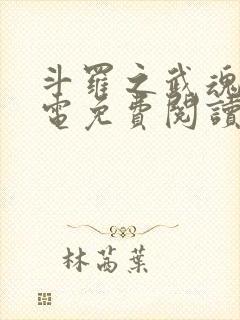 斗羅之武魂
電免費閱讀
林萵葉